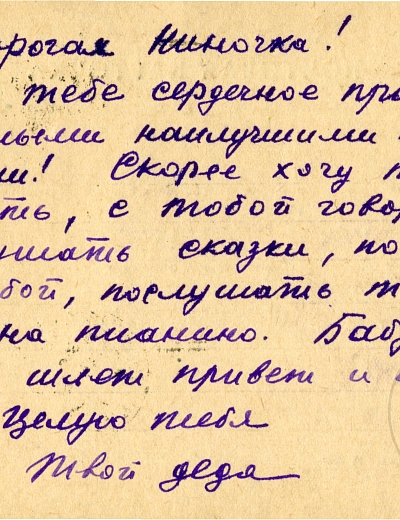 рогая Ниночка!
тебе сердечное при
ными наилучшими
ми! Скорее хочу п
ть, с тобой говор
шать сказки, по
бой, послушать т
на пианино. Баб
шлет привет и
Целую тебя
Твой деда